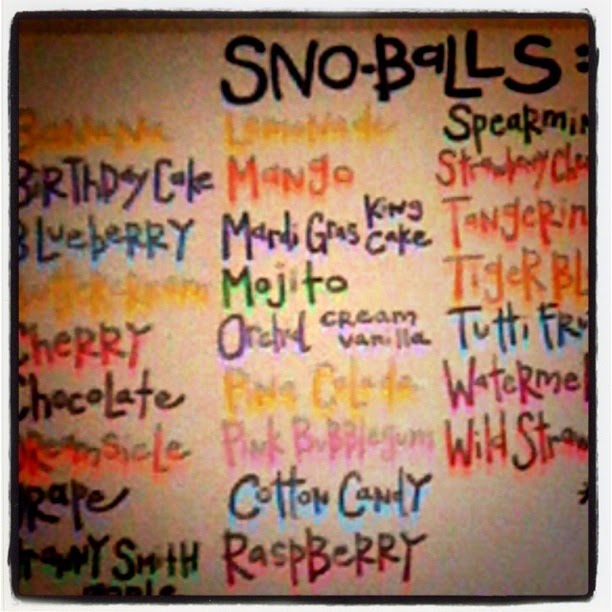 SNO-BALLS:
BANANA
BIRTHDAY Cake
BLUEBERRY
CHERRY
Chocolate
creamsicle
GRAPE
GRANNY SMITH
apple
Lemonade
Mango
Mardi Gras King Cake
Mojito
Orchid cream vanilla
Pina Colada
Pink Bubblegum
Cotton Candy
RaspBerry
Spearmin
Strawberry Che
Tangerin
TigeR BL
Tutti FRu
Watermel
Wild Straw